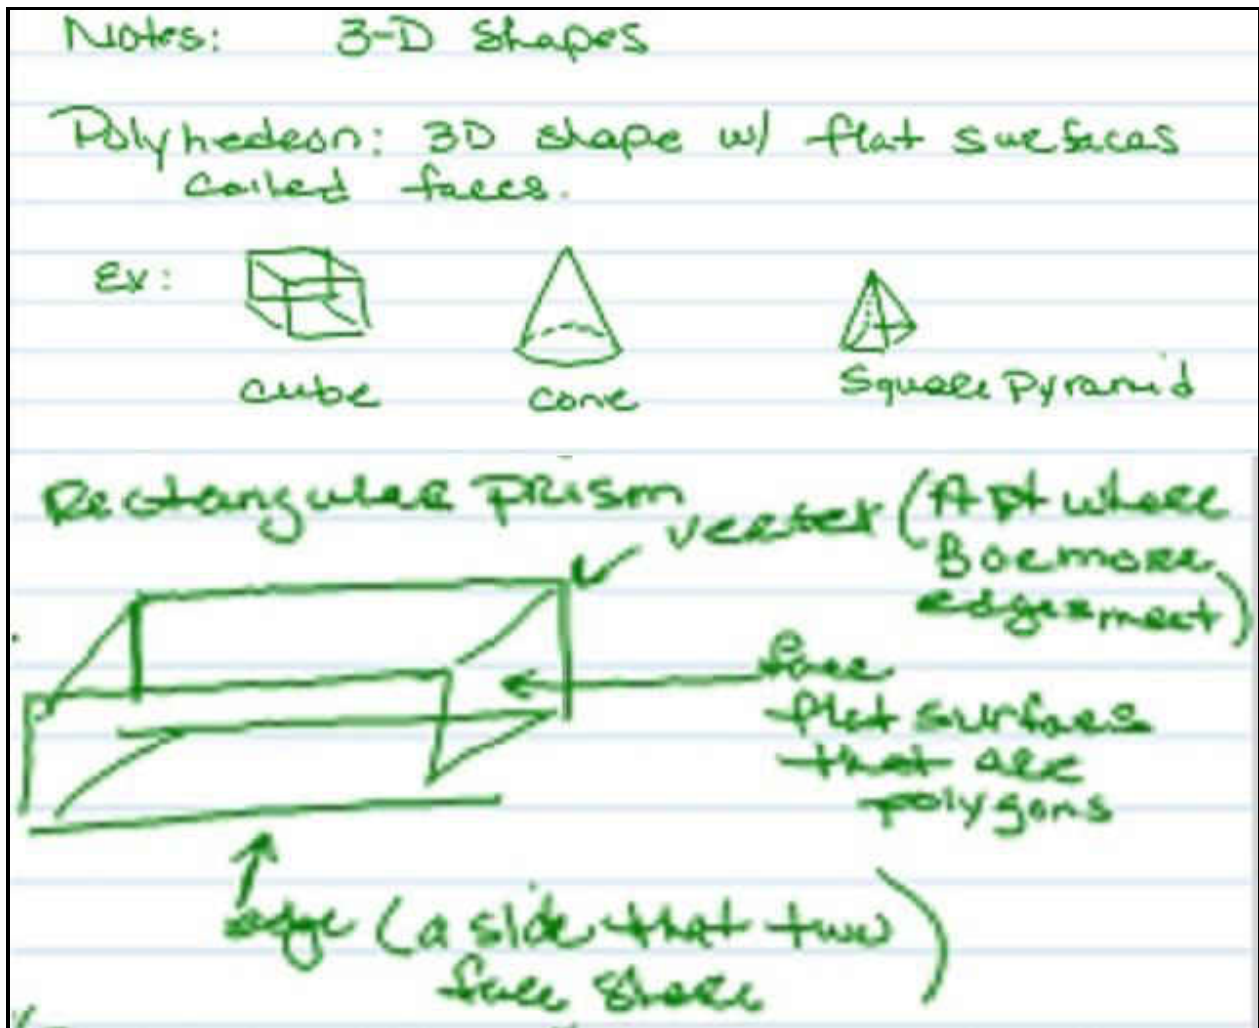 Notes: 3-D Shapes
Polyhedron: 3D shape w/ flat surfaces
called faces.
Ex:
cube cone Square Pyramid
Rectangular Prism
vertex (A pt where
3 or more
edges meet)
face
flat surfaces
that are
polygons
edge (a side that two
face share